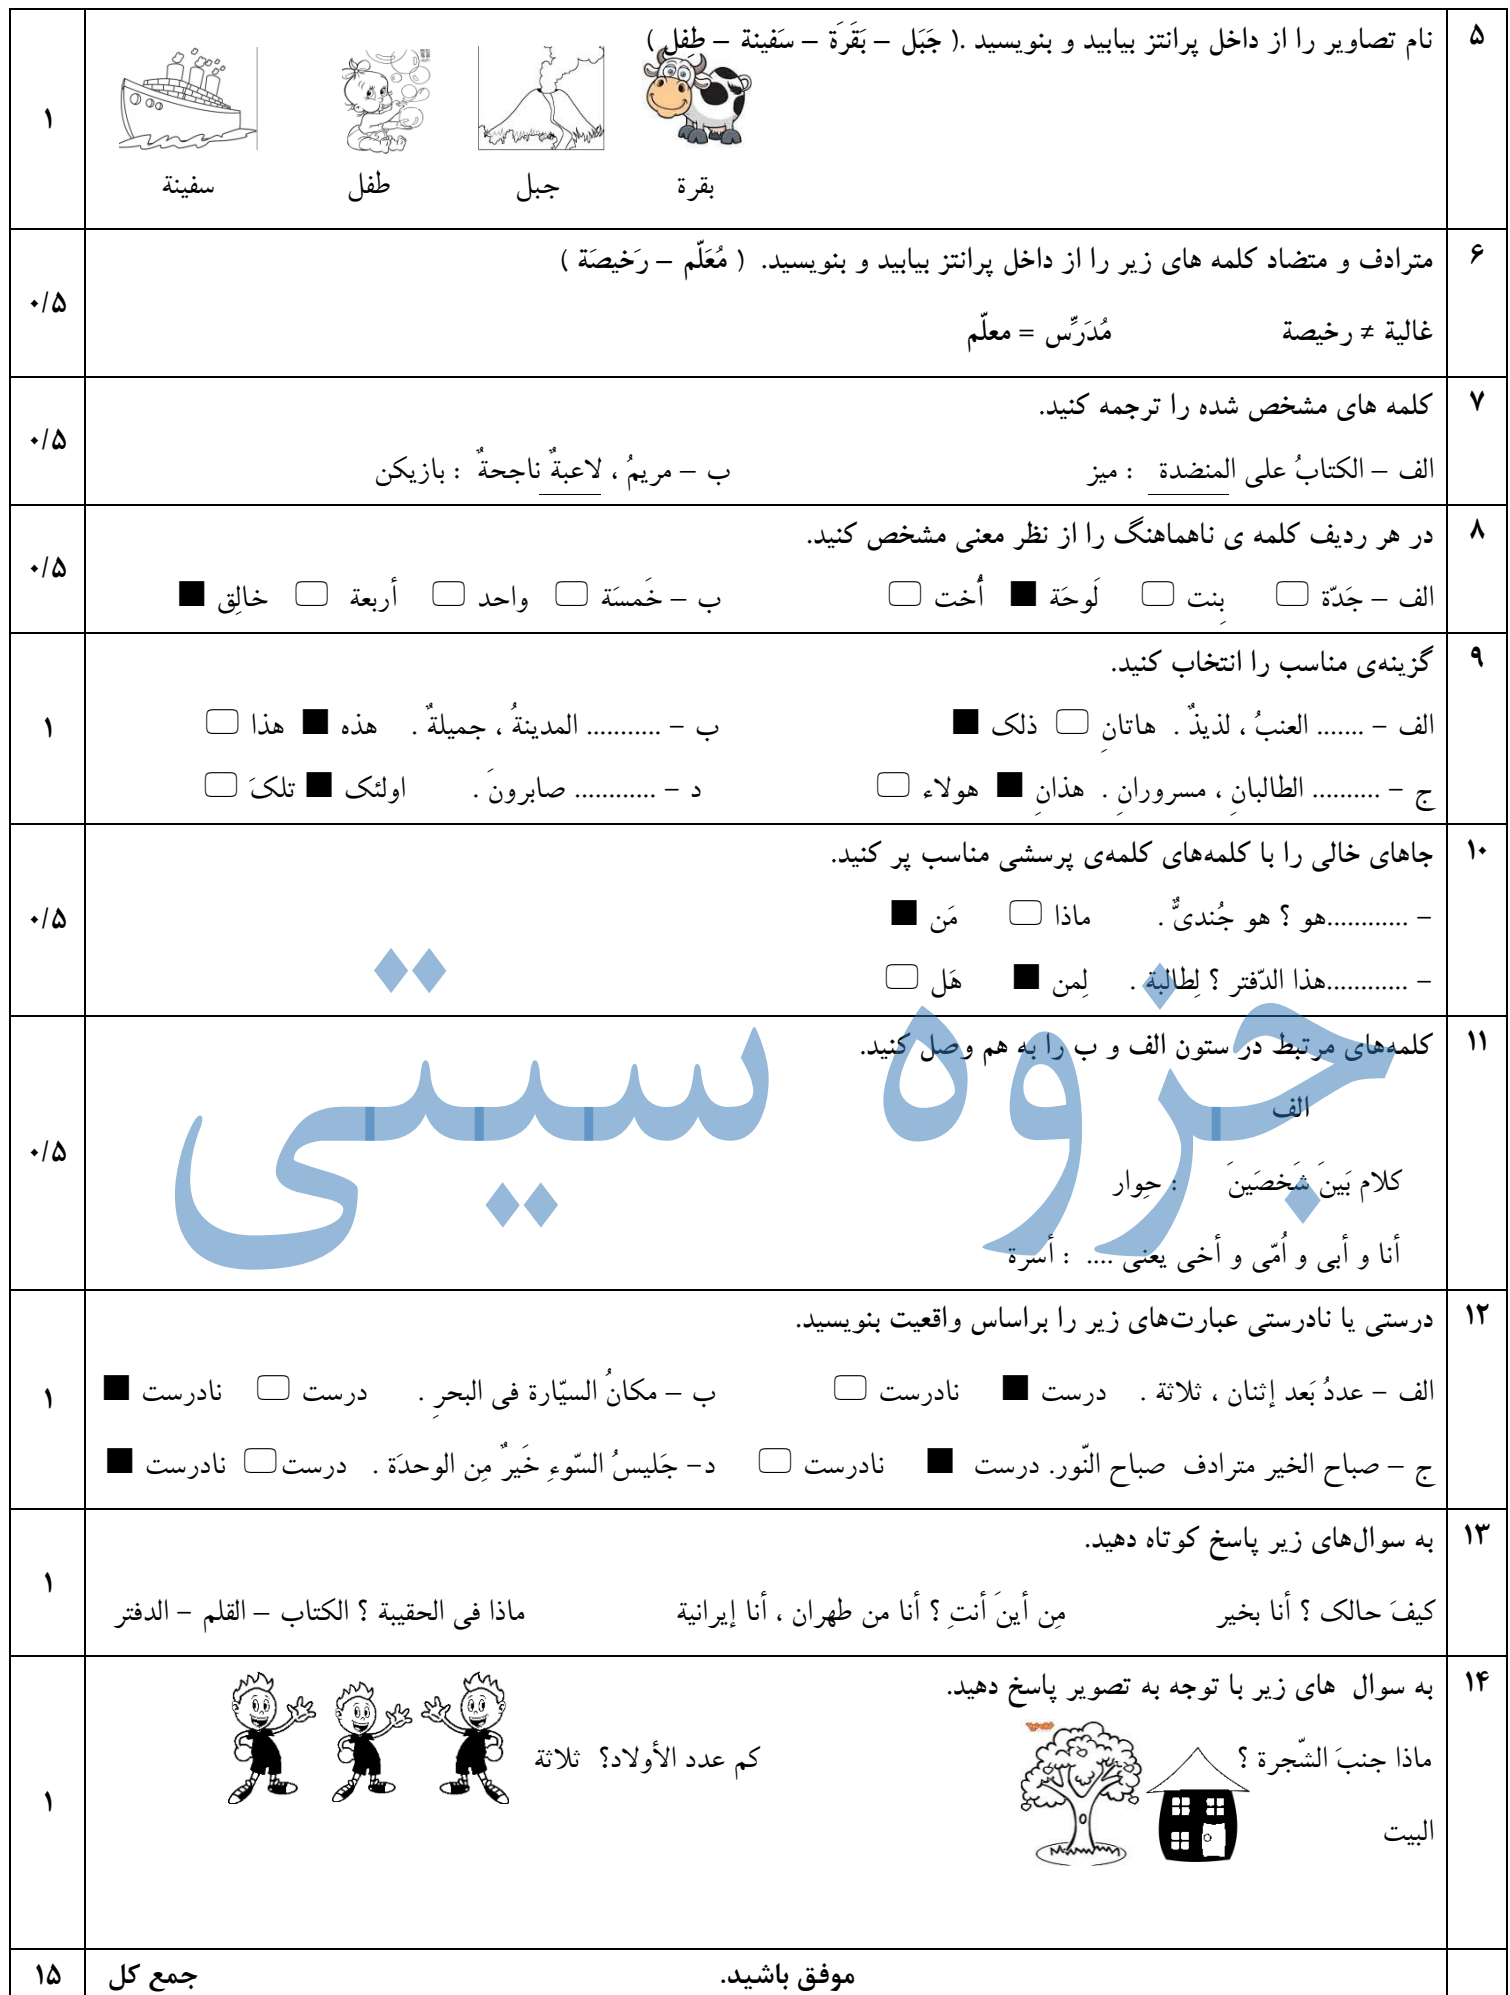 ۵ نام تصاویر را از داخل پرانتز بیابید و بنویسید .( جَبَل – بَقَرَة – سَفینة – طِفل )
۱
بقرة جبل طفل سفینة
۶ مترادف و متضاد کلمه های زیر را از داخل پرانتز بیابید و بنویسید. ( مُعَلّم – رَخیصَة )
۰/۵
غالیة ≠ رخیصة مُدَرِّس = معلّم
۷ کلمه های مشخص شده را ترجمه کنید.
۰/۵
الف – الکتابُ علی المنضدة : میز ب – مریمُ ، لاعبةٌ ناجحةٌ : بازیکن
۸ در هر ردیف کلمه ی ناهماهنگ را از نظر معنی مشخص کنید.
۰/۵
الف – جَدّة □ بِنت □ لَوحَة ■ أُخت □ ب – خَمسَة □ واحد □ أربعة □ خالِق ■
۹ گزینه‌ی مناسب را انتخاب کنید.
۱
الف – ....... العنبُ ، لذیذٌ . هاتانِ □ ذلک ■ ب – ........... المدینةُ ، جمیلةٌ . هذه ■ هذا □
ج – .......... الطالبانِ ، مسرورانِ . هذانِ ■ هولاء □ د – ............ صابرونَ . اولئک ■ تلکَ □
۱۰ جاهای خالی را با کلمه‌های کلمه‌ی پرسشی مناسب پر کنید.
۰/۵
– ............هو ؟ هو جُندیٌّ . ماذا □ مَن ■
– ............هذا الدّفتر ؟ لِطالبة . لِمن ■ هَل □
۱۱ کلمه‌های مرتبط در ستون الف و ب را به هم وصل کنید.
الف
۰/۵
کلام بَینَ شَخصَینَ : حِوار
أنا و أبی و اُمّی و أخی یعنی .... : أسرة
جزوه سیتی
۱۲ درستی یا نادرستی عبارت‌های زیر را براساس واقعیت بنویسید.
۱
الف – عددُ بَعد إثنان ، ثلاثة . درست ■ نادرست □ ب – مکانُ السیّارة فی البحرِ . درست □ نادرست ■
ج – صباح الخیر مترادف صباح النّور. درست ■ نادرست □ د– جَلیسُ السّوءِ خَیرٌ مِن الوحدَة . درست□ نادرست ■
۱۳ به سوال‌های زیر پاسخ کوتاه دهید.
۱
کیفَ حالک ؟ أنا بخیر مِن أینَ أنتِ ؟ أنا من طهران ، أنا إیرانیة ماذا فی الحقیبة ؟ الکتاب – القلم – الدفتر
۱۴ به سوال های زیر با توجه به تصویر پاسخ دهید.
ماذا جنبَ الشّجرة ؟ کم عدد الأولاد؟ ثلاثة
۱
البیت
موفق باشید. جمع کل ۱۵